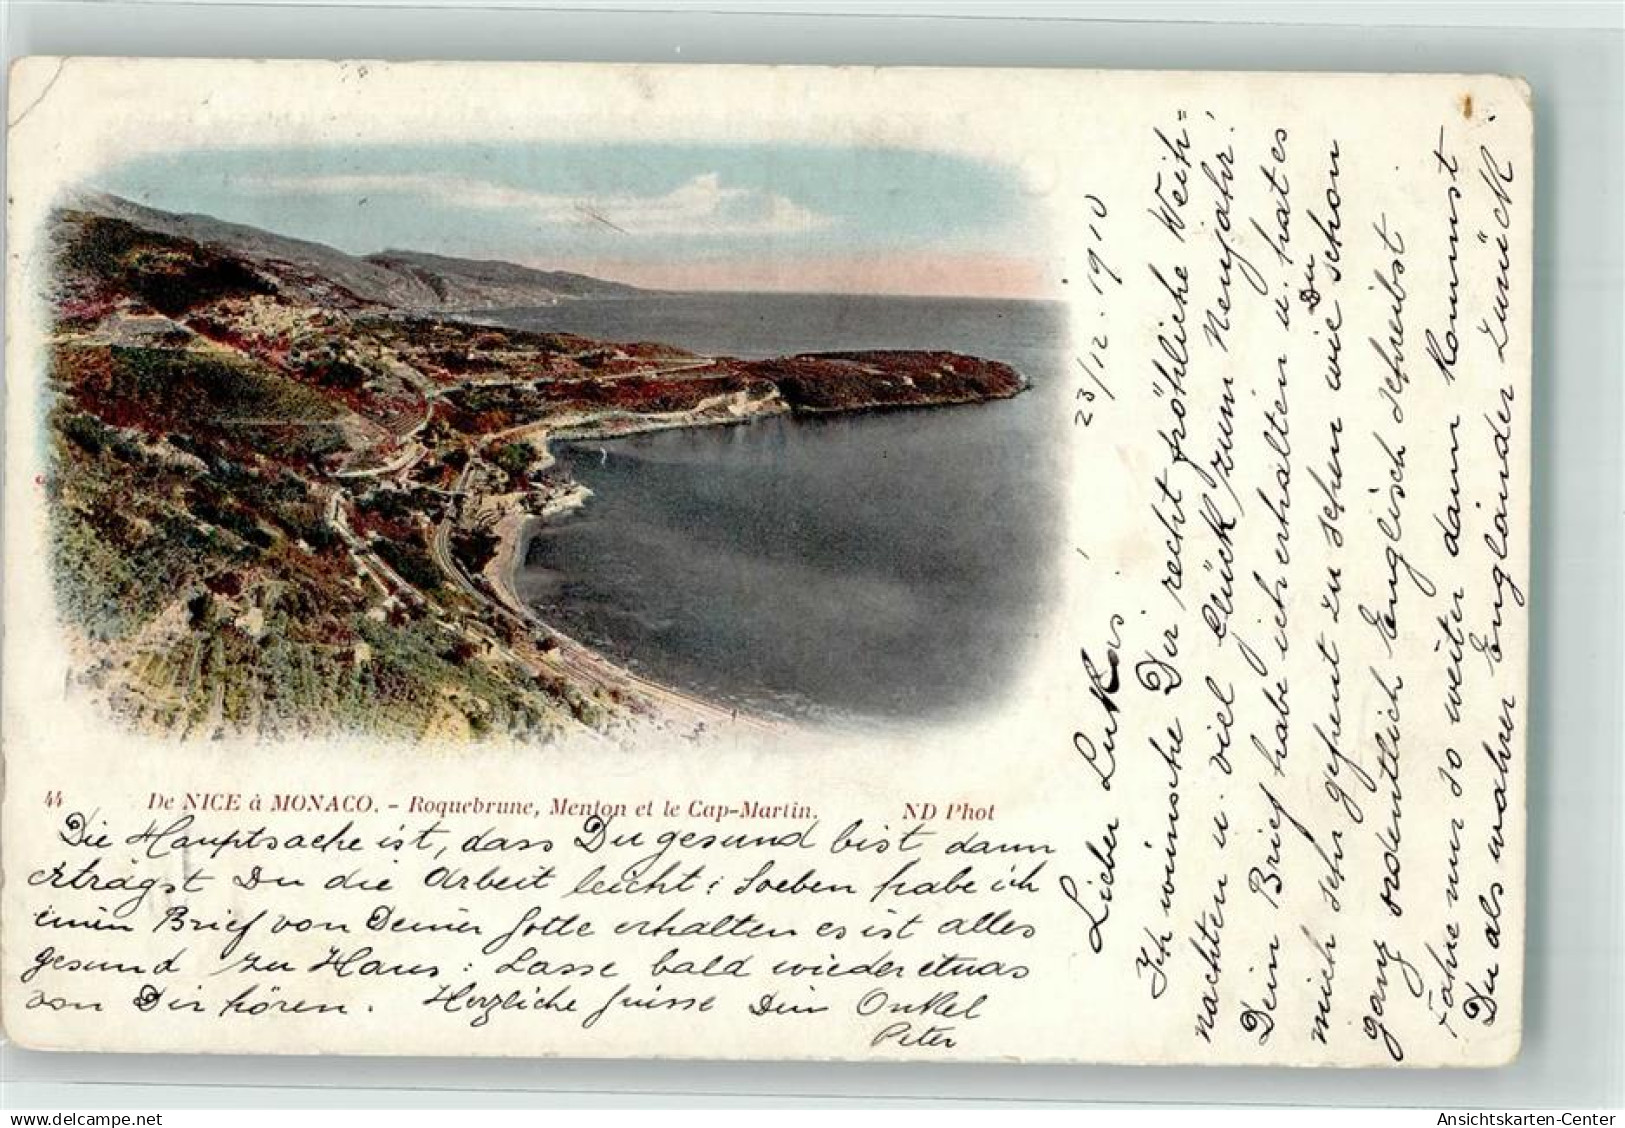 44 De NICE à MONACO. - Roquebrune, Menton et le Cap-Martin. ND Phot
23/12. 1910
Lieber Lukas!
Ich wünsche Dir recht fröhliche Weih=
nachten u. viel Glück zum Neujahr!
Dein Brief habe ich erhalten u. hat es
mich sehr gefreut zu sehen wie Du schon
ganz ordentlich Englisch schreibst.
Fahre nur so weiter dann kommst
Du als wahrer Engländer zurück.
Die Hauptsache ist, dass Du gesund bist dann
erträgst Du die Arbeit leicht: Soeben habe ich
einen Brief von Deiner Gotte erhalten es ist alles
gesund zu Haus: Lasse bald wieder etwas
von Dir hören. Herzliche Grüsse Dein Onkel
Peter
ansichtskarten-center.de
Ansichtskarten-Center